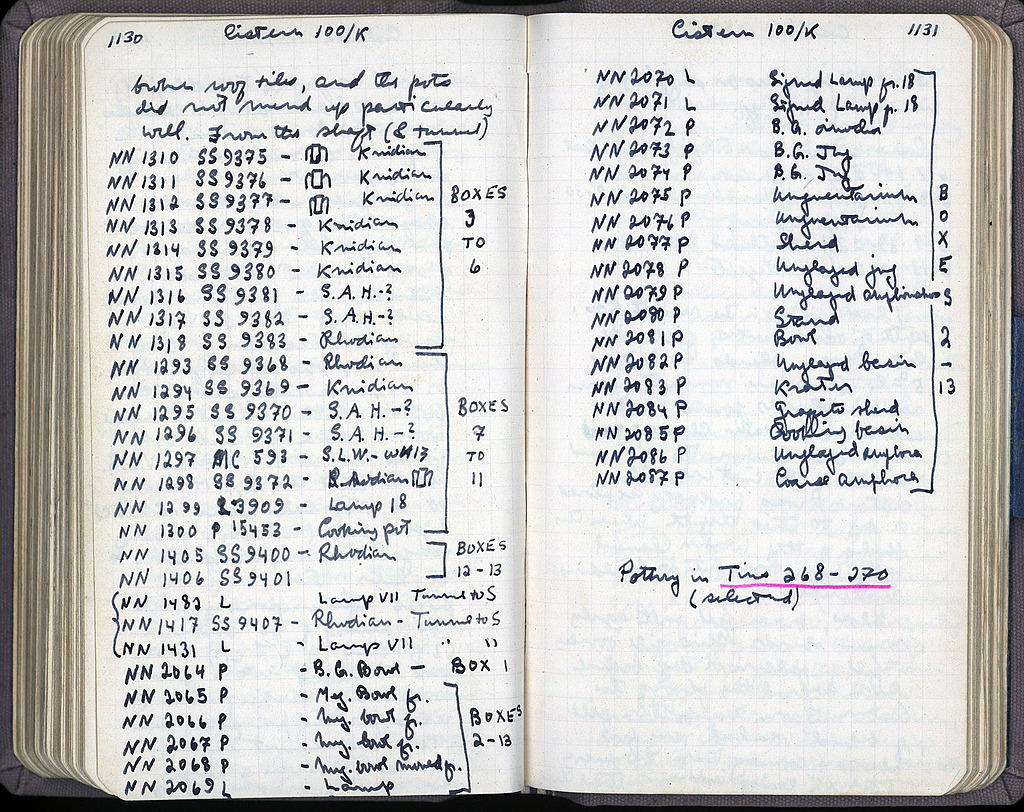 1130 Cistern 100/K
broken roof tiles, and the pots
did not mend up particularly
well. From the shaft (& tunnel)
NN 1310 SS 9375 - Knidian
NN 1311 SS 9376 - Knidian
NN 1312 SS 9377 - Knidian
NN 1313 SS 9378 - Knidian
NN 1314 SS 9379 - Knidian
NN 1315 SS 9380 - Knidian
NN 1316 SS 9381 - S.A.H.-?
NN 1317 SS 9382 - S.A.H.-?
NN 1318 SS 9383 - Rhodian
BOXES
3
TO
6
NN 1293 SS 9368 - Rhodian
NN 1294 SS 9369 - Knidian
NN 1295 SS 9370 - S.A.H.-?
NN 1296 SS 9371 - S.A.H.-?
NN 1297 MC 593 - S.L.W.-
NN 1298 SS 9372 - Rhodian
NN 1299 L 3909 - Lamp 18
NN 1300 P 15453 - Cooking pot
BOXES
7
TO
11
NN 1405 SS 9400 - Rhodian
NN 1406 SS 9401
BOXES
12-13
NN 1482 L Lamp VII Tunnel to S
NN 1417 SS 9407 - Rhodian - Tunnel to S
NN 1431 L - Lamp VII " "
NN 2064 P - B.G. Bowl - BOX 1
NN 2065 P - Meg. Bowl fr.
NN 2066 P - Meg. bowl fr.
NN 2067 P - Meg. bowl fr.
NN 2068 P - Meg. bowl fr.
NN 2069 L - Lamp
BOXES
2-13
Cistern 100/K 1131
NN 2070 L Signed Lamp fr. 18
NN 2071 L Signed Lamp fr. 18
NN 2072 P B.G. oinochoe
NN 2073 P B.G. Jug
NN 2074 P B.G. Jug
NN 2075 P Unguentarium
NN 2076 P Unguentarium
NN 2077 P Sherd
NN 2078 P Unglazed jug
NN 2079 P Unglazed amphoriskos
NN 2080 P Stand
NN 2081 P Bowl
NN 2082 P Unglazed basin
NN 2083 P Krater
NN 2084 P Graffito sherd
NN 2085 P Cooking basin
NN 2086 P Unglazed amphora
NN 2087 P Coarse amphora
B
O
X
E
S
2
-
13
Pottery in Tins 268-270
(selected)